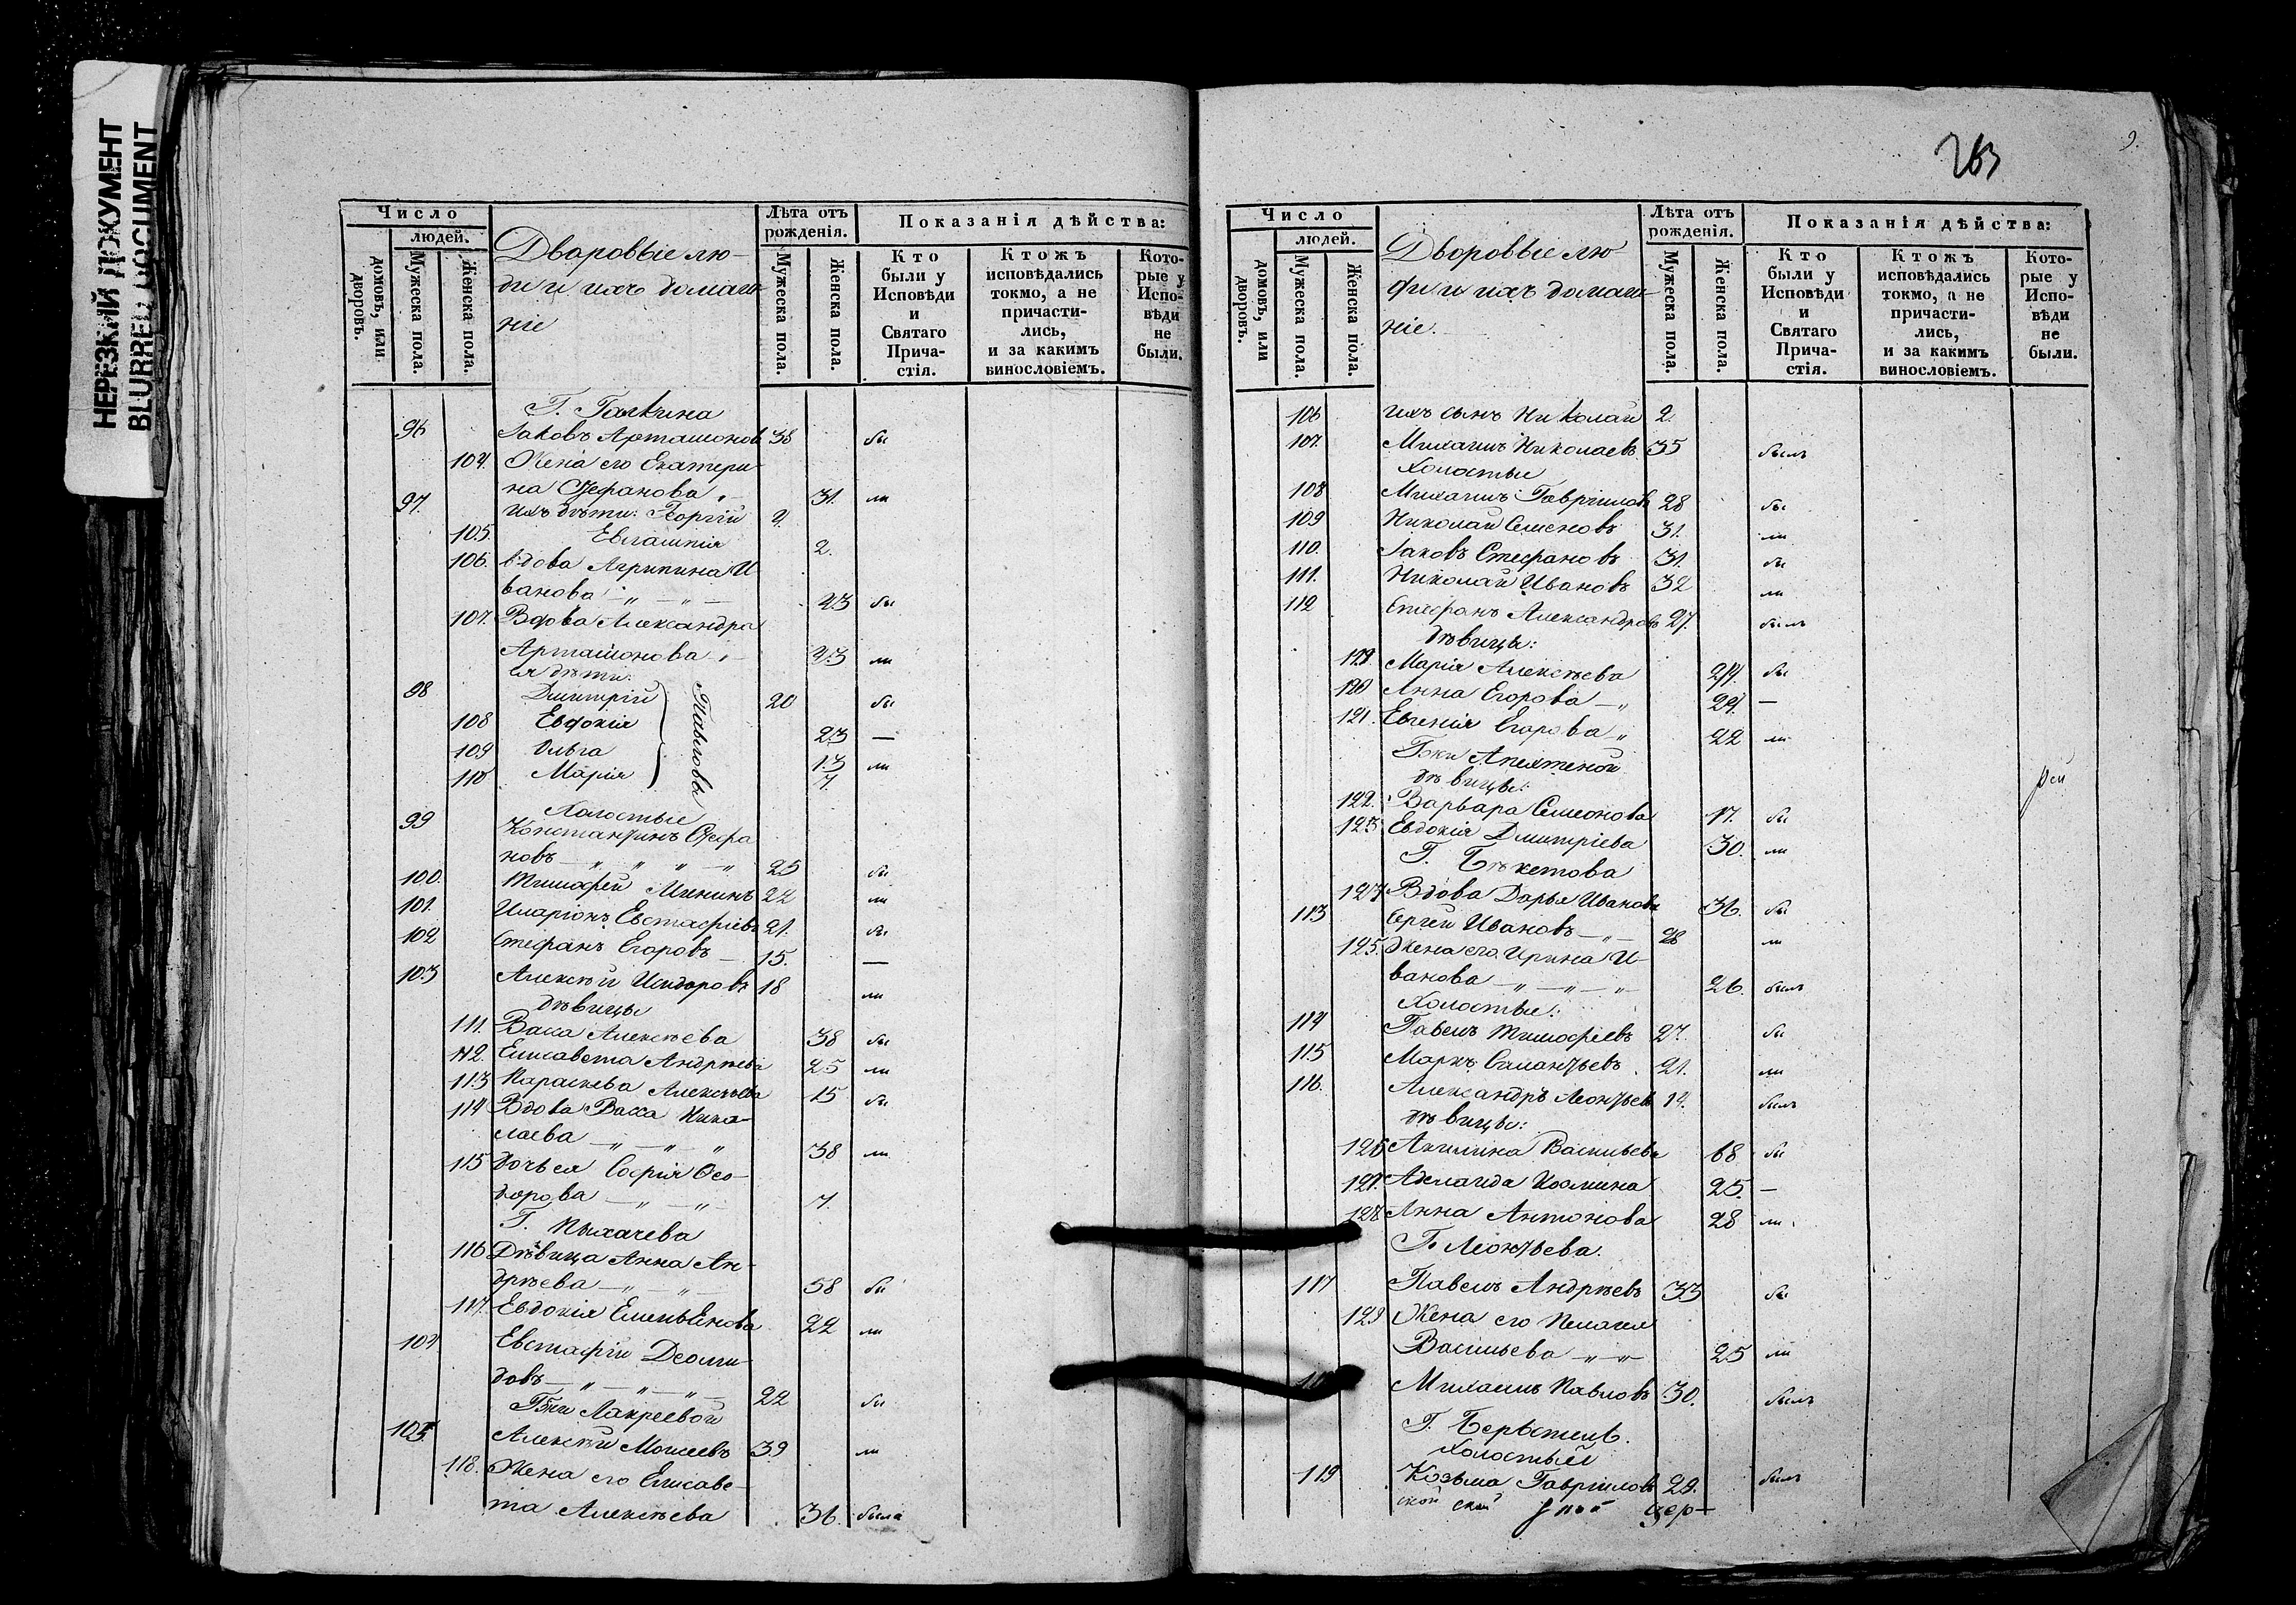 НЕРЕЗКИЙ ДОКУМЕНТ
BLURRED DOCUMENT
Число
людей.
домовъ, или дворовъ.
Мужеска пола.
Женска пола.
Дворовые лю-
ди и ихъ домаш-
ніе
Лѣта отъ рожденія.
Мужеска пола.
Женска пола.
Показанія дѣйства:
Кто были у Исповѣди и Святаго Прича-стія.
Ктожъ исповѣдались токмо, а не причасти-лись, и за какимъ винословіемъ.
Кото-рые у Испо-вѣди не были.
Г. Галкина
96 Іаковъ Артамонов 38 бы
104. Жена его Екатери-
на Стефанова 31. ли
97. ихъ дѣти: Георгій 4.
105. Евлампія 2.
106. вдова Агрипина И
ванова 43 бы
107. Вдова Александра
Артамонова 43 ли
ея дѣти:
98 Дмитрій 20 бы
108 Евдокія 23 —
109 Ольга 13 ли
110 Марія 7.
Павлова
Холостые
99 Константинъ Стефа
новъ 25 бы
100. Тимофей Мининъ 22 ли
101. Иларіонъ Евстафіевъ 21. бы
102 Стефанъ Егоровъ 15. —
103 Алексѣй Исидоровъ 18 ли
дѣвицы
111. Васса Алексѣева 38 бы
112. Елисавета Андрѣева 25 ли
113 Параскева Алексѣева 15 бы
114 Вдова Васса Нико-
лаева 38 ли
115 Дочь ея Софія Ѳео-
дорова 7.
Г. Пыхачева
116 Дѣвица Анна Ан-
дрѣева 58 бы
117. Евдокія Емельенова 22 ли
104 Евстафій Деоми-
довъ 22 бы
Гжи Лакреевой
105 Алексѣй Моисеевъ 39 ли
118. Жена его Елисаве-
та Алексѣева 36. была
263
9.
Число
людей.
домовъ, или дворовъ.
Мужеска пола.
Женска пола.
Дворовые лю-
ди и ихъ домаш-
ніе.
Лѣта отъ рожденія.
Мужеска пола.
Женска пола.
Показанія дѣйства:
Кто были у Исповѣди и Святаго Прича-стія.
Ктожъ исповѣдались токмо, а не причасти-лись, и за какимъ винословіемъ.
Кото-рые у Испо-вѣди не были.
106 ихъ сынъ Николай 2.
107. Михаилъ Николаевъ 35 былъ
Холостые
108 Михаилъ Гавріиловъ 28 бы
109 Николай Семеновъ 31. ли
110. Іаковъ Стефановъ 31. бы
111. Николай Ивановъ 32 ли
112 Стефанъ Александровъ 27. былъ
дѣвицы:
119. Марія Алексѣева 24. бы
120 Анна Егорова 24. —
121. Евгенія Егорова 22 ли
Гжи
дѣвицы:
122. Варвара Семеонова 17. бы
123 Евдокія Дмитріева 30. ли
Г. Бѣкетова
124 Вдова Дарья Иванова 36. бы
113 Сергей Ивановъ 28 ли
125. Жена его Ирина И-
ванова 26. былъ
Холостые:
114 Павелъ Тимофіевъ 27. бы
115 Маркъ 21. ли
116. Александръ Леонтьевъ 14. былъ
дѣвицы:
126 Акилина Васильева 68 бы
127. Аделаида Козмина 25. —
128 Анна Антонова 28 ли
Г. Леонтьева.
117 Павелъ Андрѣевъ 33 бы
129 Жена его Пелагея
Васильева 25 ли
Михаилъ Павловъ 30. былъ
Г.
Холостый
119 Козьма Гавріиловъ 29. былъ